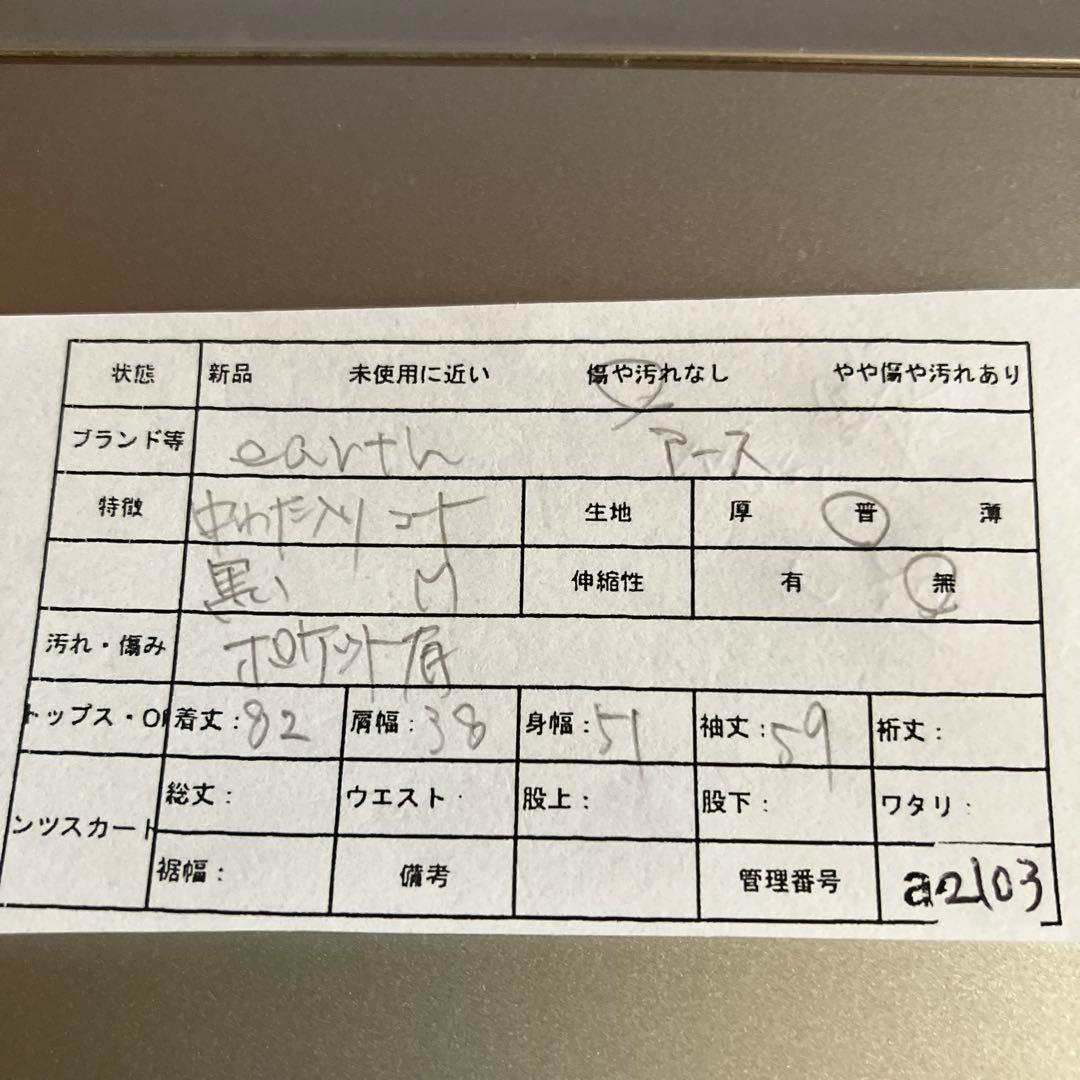 状態 新品 未使用に近い 傷や汚れなし やや傷や汚れあり
ブランド等 earth アース
特徴 中わた入り コート 生地 厚 普 薄
黒い M 伸縮性 有 無
汚れ・傷み ポケット有
トップス・O 着丈:82 肩幅:38 身幅:51 袖丈:59 裄丈:
総丈: ウエスト 股上: 股下: ワタリ:
ンツスカート
裾幅: 備考 管理番号 a2103